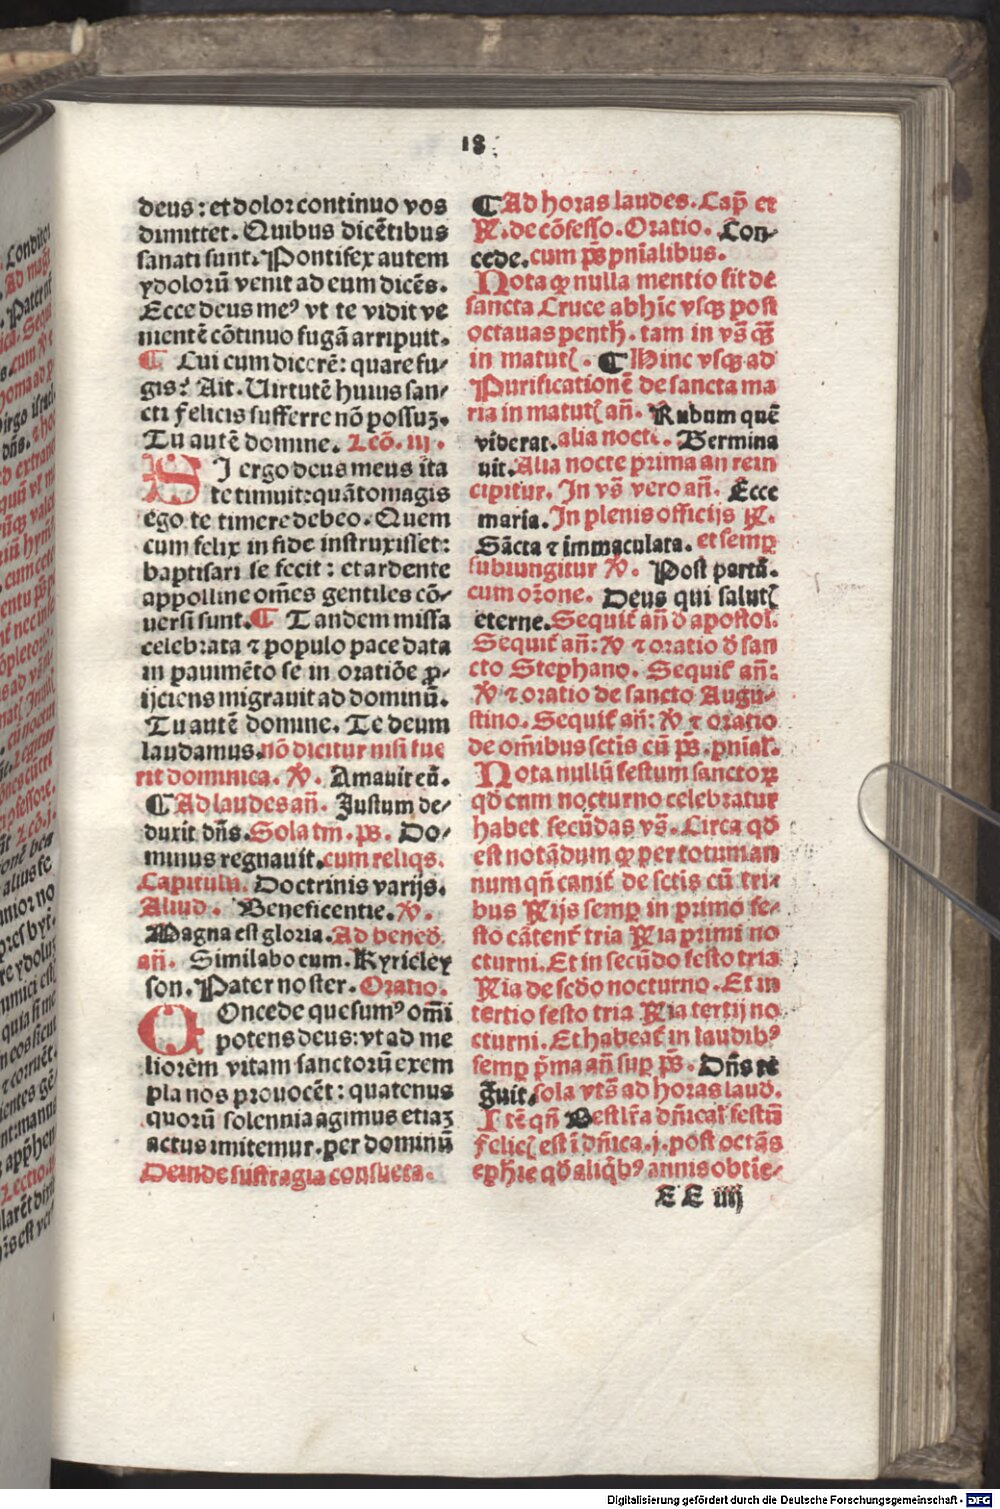 18
deus: et dolor continuo vos
dimittet. Quibus dicẽtibus
sanati sunt. Pontifex autem
ydolorũ venit ad eum dicẽs.
Ecce deus meꝰ vt te vidit ve
nientẽ cõtinuo fugã arripuit.
¶ Cui cum dicerẽ: quare fu-
gis? Ait. Uirtutẽ huius san-
cti felicis sufferre nõ possuꝫ.
Tu autẽ domine. Lcõ. iij.
SI ergo deus meus ita
te timuit: quãtomagis
ego te timere debeo. Quem
cum felix in fide instruxisset:
baptisari se fecit: et ardente
appolline om̃es gentiles cõ-
uersi sunt. ¶ Tandem missa
celebrata ⁊ populo pace data
in pauimẽto se in oratiõe ꝓ-
ijciens migrauit ad dominũ.
Tu autẽ domine. Te deum
laudamus. nõ dicitur nisi fue
rit dominica. ℣. Amauit eũ.
¶ Ad laudes añ. Justum de-
duxit dñs. Sola tm̃. ps. Do-
minus regnauit. cum reliqs.
Capitulũ. Doctrinis varijs.
Aliud. Beneficentie. ℣.
Magna est gloria. Ad bened̃.
añ. Similabo eum. Kyrieley
son. Pater noster. Oratio.
COncede quesumꝰ om̃i
potens deus: vt ad me
liorẽm vitam sanctorũ exem
pla nos prouocẽt: quatenus
quorũ solennia agimus etiaꝫ
actus imitemur. per dominũ
Deinde suffragia consueta.
¶ Ad horas laudes. Cap̃ et
℟. de cõfesso. Oratio. Con-
cede. cum p̃s pñialibus.
Nota ꝙ nulla mentio fit de
sancta Cruce abhĩc vsqꝫ post
octauas penth̃. tam in vs̃ ꝙ̃
in matut̃. ¶ Hinc vsqꝫ ad
Purificationẽ de sancta ma
ria in matut̃ añ. Rubum quẽ
viderat. alia nocte. Germina
uit. Alia nocte prima an rein
cipitur. In vs̃ vero añ. Ecce
maria. In plenis officijs ℟.
Sãcta ⁊ immaculata. et semꝑ
subiungitur ℣. Post partũ.
cum or̃one. Deus qui salut̃
eterne. Sequit̃ añ d̃ apostol̃.
Sequit̃ añ: ℣ ⁊ oratio d̃ san
cto Stephano. Sequit̃ añ:
℣ ⁊ oratio de sancto Augu-
stino. Sequit̃ añ: ℣ ⁊ oratio
de om̃ibus sctis cũ p̃s. pñial̃.
Nota nullũ festum sanctoꝝ
qd̃ cum nocturno celebratur
habet secũdas vs̃. Circa qd̃
est notãdum ꝙ per totum an
num qñ canit̃ de sctis cũ tri-
bus ℟ijs semꝑ in primo fe-
sto cãtent̃ tria ℟ia primi no
cturni. Et in secũdo festo tria
℟ia de scd̃o nocturno. Et in
tertio festo tria ℟ia tertij no
cturni. Et habeat̃ in laudibꝰ
semꝑ p̃ma añ sup̃ p̃s. Dñs re
gnit. sola vts̃ ad horas laud̃.
Itẽ qñ Vestlr̃a dñical̃ festũ
felic̃ est ĩ dñica. j. post octãs
ephie qd̃ aliq̃bꝰ annis obtie-
EE iiij
Digitalisierung gefördert durch die Deutsche Forschungsgemeinschaft - DFG